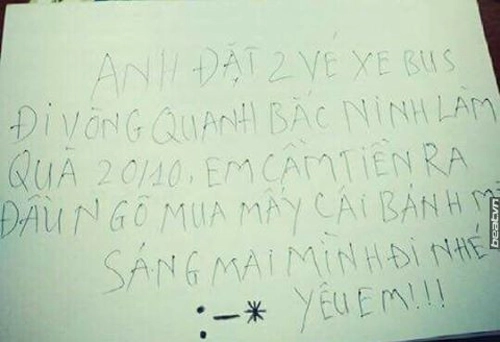 ANH ĐẶT 2 VÉ XE BUS
ĐI VÒNG QUANH BẮC NINH LÀM
QUÀ 20/10, EM CẦM TIỀN RA
ĐẦU NGÕ MUA MẤY CÁI BÁNH MÌ
SÁNG MAI MÌNH ĐI NHÉ
YÊU EM!!!
:-*
beatvn